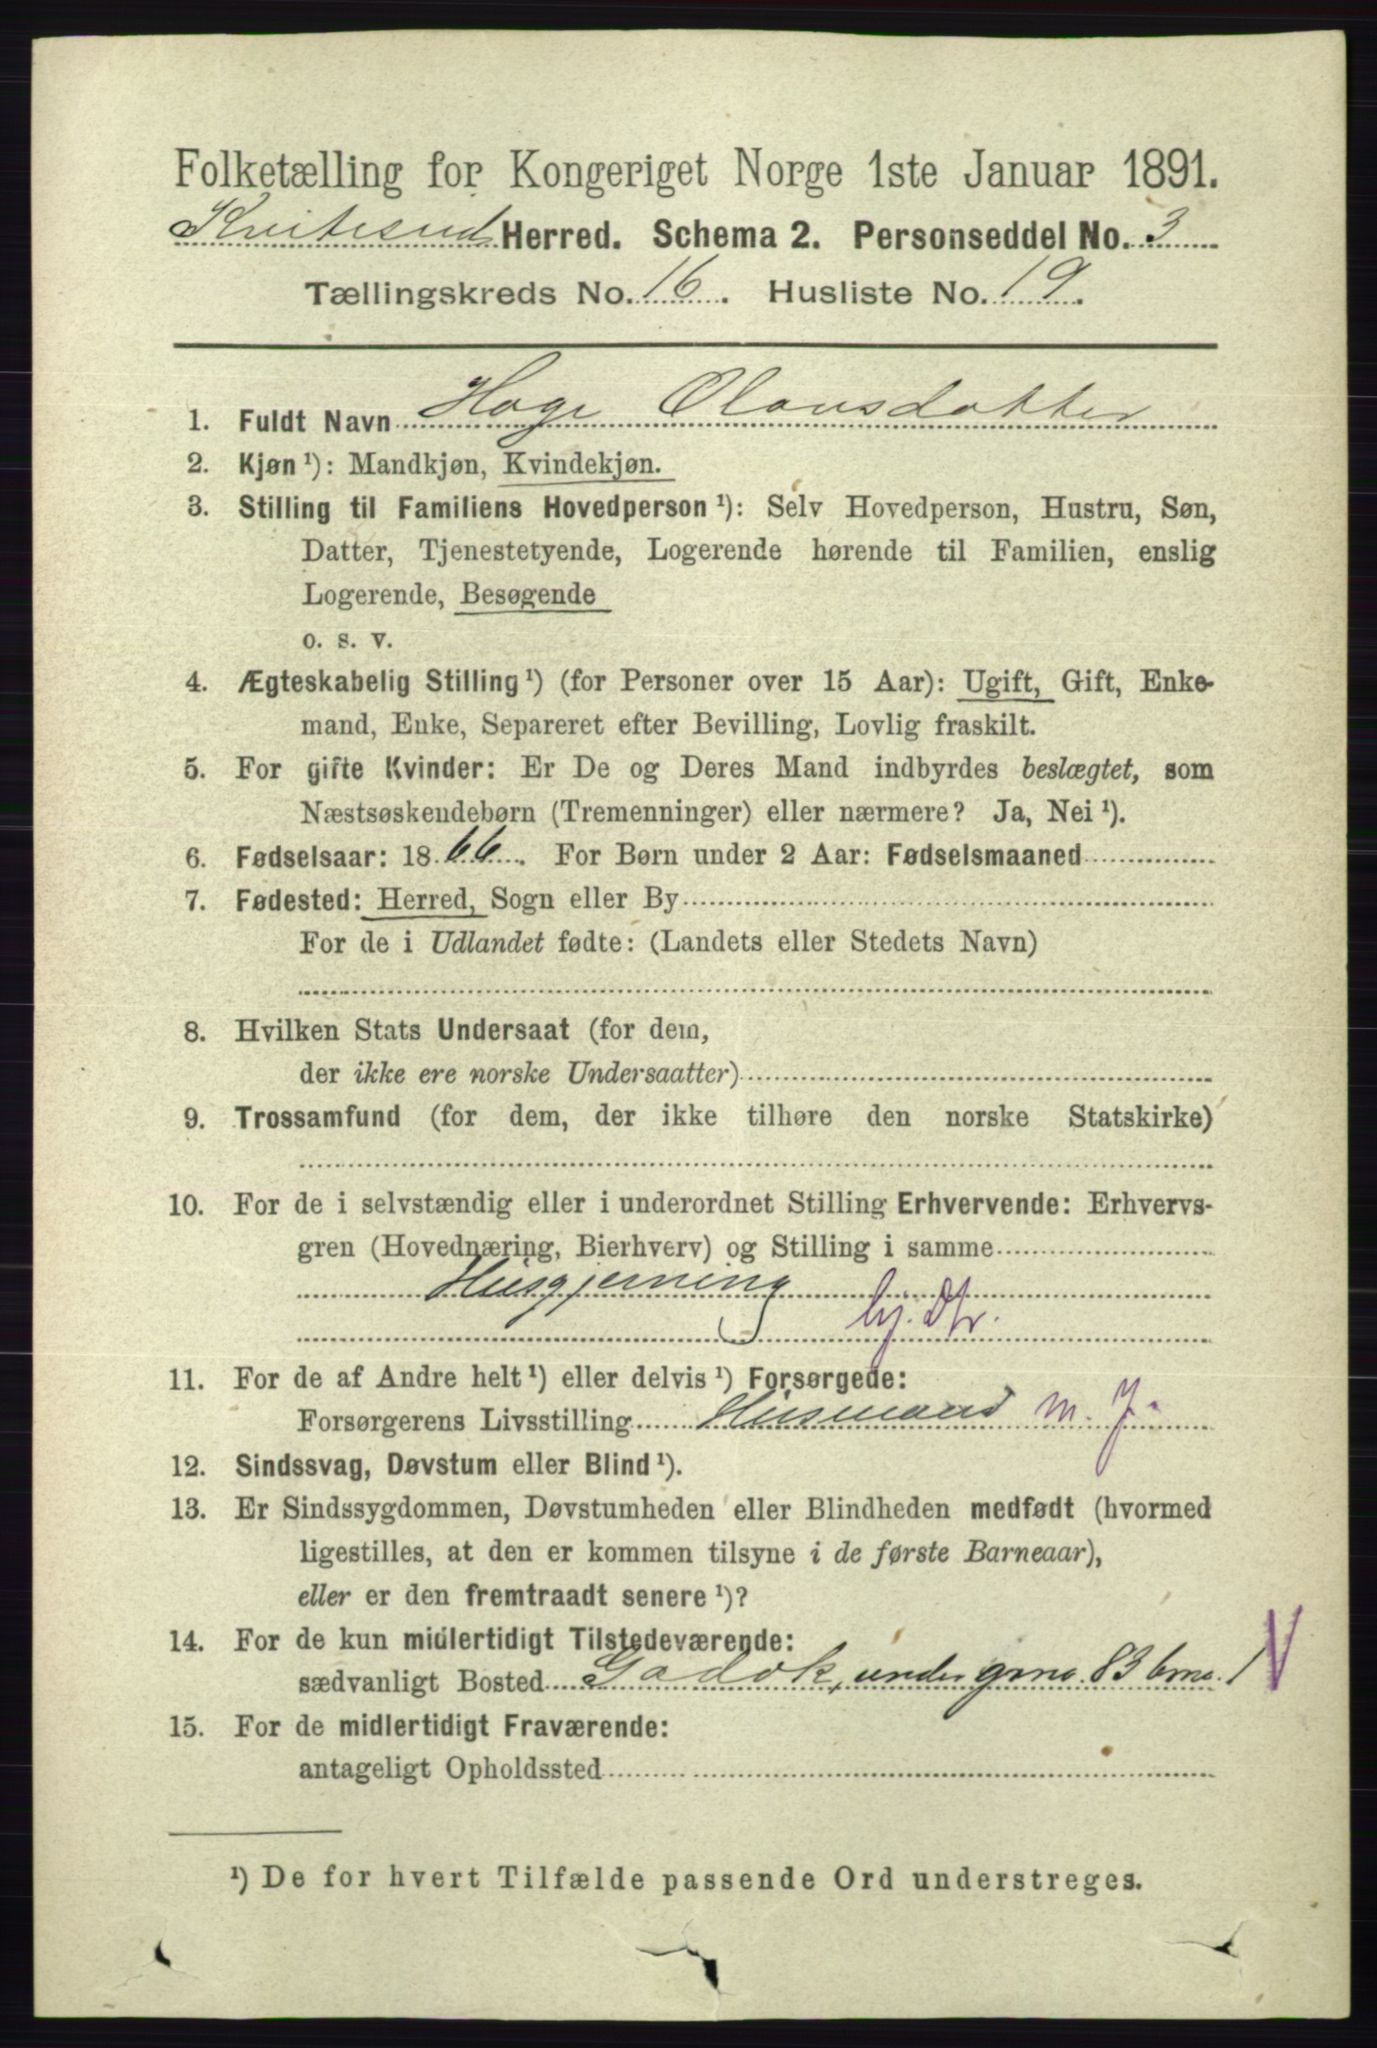 Folketælling for Kongeriget Norge 1ste Januar 1891.
Kviteseid Herred. Schema 2. Personseddel No. 3
Tællingskreds No. 16. Husliste No. 19.
1. Fuldt Navn Hage Olavsdotter
2. Kjøn ¹): Mandkjøn, Kvindekjøn.
3. Stilling til Familiens Hovedperson ¹): Selv Hovedperson, Hustru, Søn,
Datter, Tjenestetyende, Logerende hørende til Familien, enslig
Logerende, Besøgende
o. s. v.
4. Ægteskabelig Stilling ¹) (for Personer over 15 Aar): Ugift, Gift, Enke-
mand, Enke, Separeret efter Bevilling, Lovlig fraskilt.
5. For gifte Kvinder: Er De og Deres Mand indbyrdes beslægtet, som
Næstsøskendebørn (Tremenninger) eller nærmere? Ja, Nei ¹).
6. Fødselsaar: 1866. For Børn under 2 Aar: Fødselsmaaned
7. Fødested: Herred, Sogn eller By
For de i Udlandet fødte: (Landets eller Stedets Navn)
8. Hvilken Stats Undersaat (for dem,
der ikke ere norske Undersaatter)
9. Trossamfund (for dem, der ikke tilhøre den norske Statskirke)
10. For de i selvstændig eller i underordnet Stilling Erhvervende: Erhvervs-
gren (Hovednæring, Bierhverv) og Stilling i samme
Husgjerning
hj. Dtr.
11. For de af Andre helt ¹) eller delvis ¹) Forsørgede:
Forsørgerens Livsstilling Husmand m. J.
12. Sindssvag, Døvstum eller Blind ¹).
13. Er Sindssygdommen, Døvstumheden eller Blindheden medfødt (hvormed
ligestilles, at den er kommen tilsyne i de første Barneaar),
eller er den fremtraadt senere ¹)?
14. For de kun midlertidigt Tilstedeværende:
sædvanligt Bosted under grno. 83 bno. 1
15. For de midlertidigt Fraværende:
antageligt Opholdssted
¹) De for hvert Tilfælde passende Ord understreges.